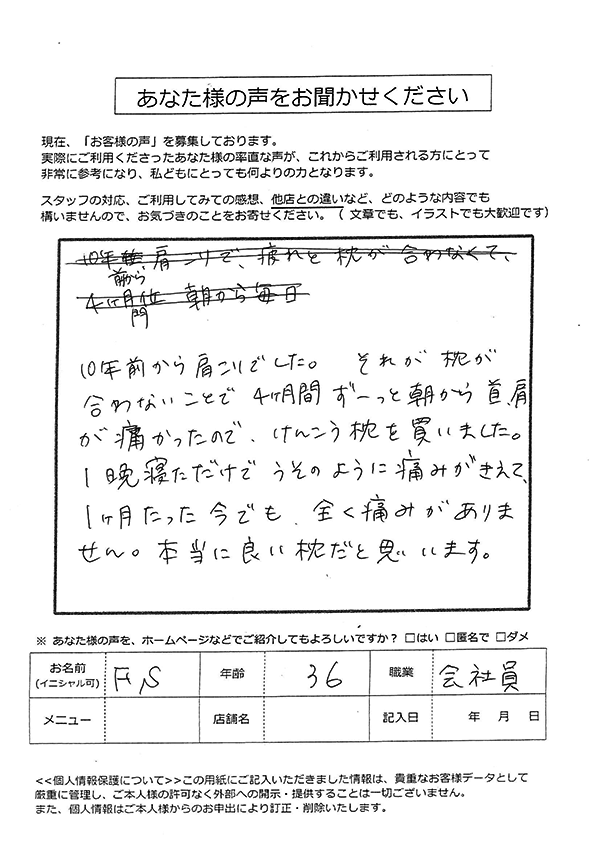 あなた様の声をお聞かせください
現在、「お客様の声」を募集しております。
実際にご利用くださったあなた様の率直な声が、これからご利用される方にとって
非常に参考になり、私どもにとっても何よりの力となります。
スタッフの対応、ご利用してみての感想、他店との違いなど、どのような内容でも
構いませんので、お気づきのことをお寄せください。（ 文章でも、イラストでも大歓迎です）
10年 肩こりで、疲れと 枕が 合わなくて、
前から
4ヶ月位 朝から毎日
門
10年前から肩こりでした。 それが 枕が
合わないことで 4ヶ月間 ずーっと朝から 首、肩
が痛かったので、けんこう枕を買いました。
1晩寝ただけで うそのように痛みがきえて、
1ヶ月たった今でも、全く痛みがありま
せん。本当に良い枕だと思います。
※ あなた様の声を、ホームページなどでご紹介してもよろしいですか？ □はい □匿名で □ダメ
お名前 (イニシャル可) F,S 年齢 36 職業 会社員
メニュー 店舗名 記入日 年 月 日
<<個人情報保護について>>この用紙にご記入いただきました情報は、貴重なお客様データとして
厳重に管理し、ご本人様の許可なく外部への開示・提供することは一切ございません。
また、個人情報はご本人様からのお申出により訂正・削除いたします。